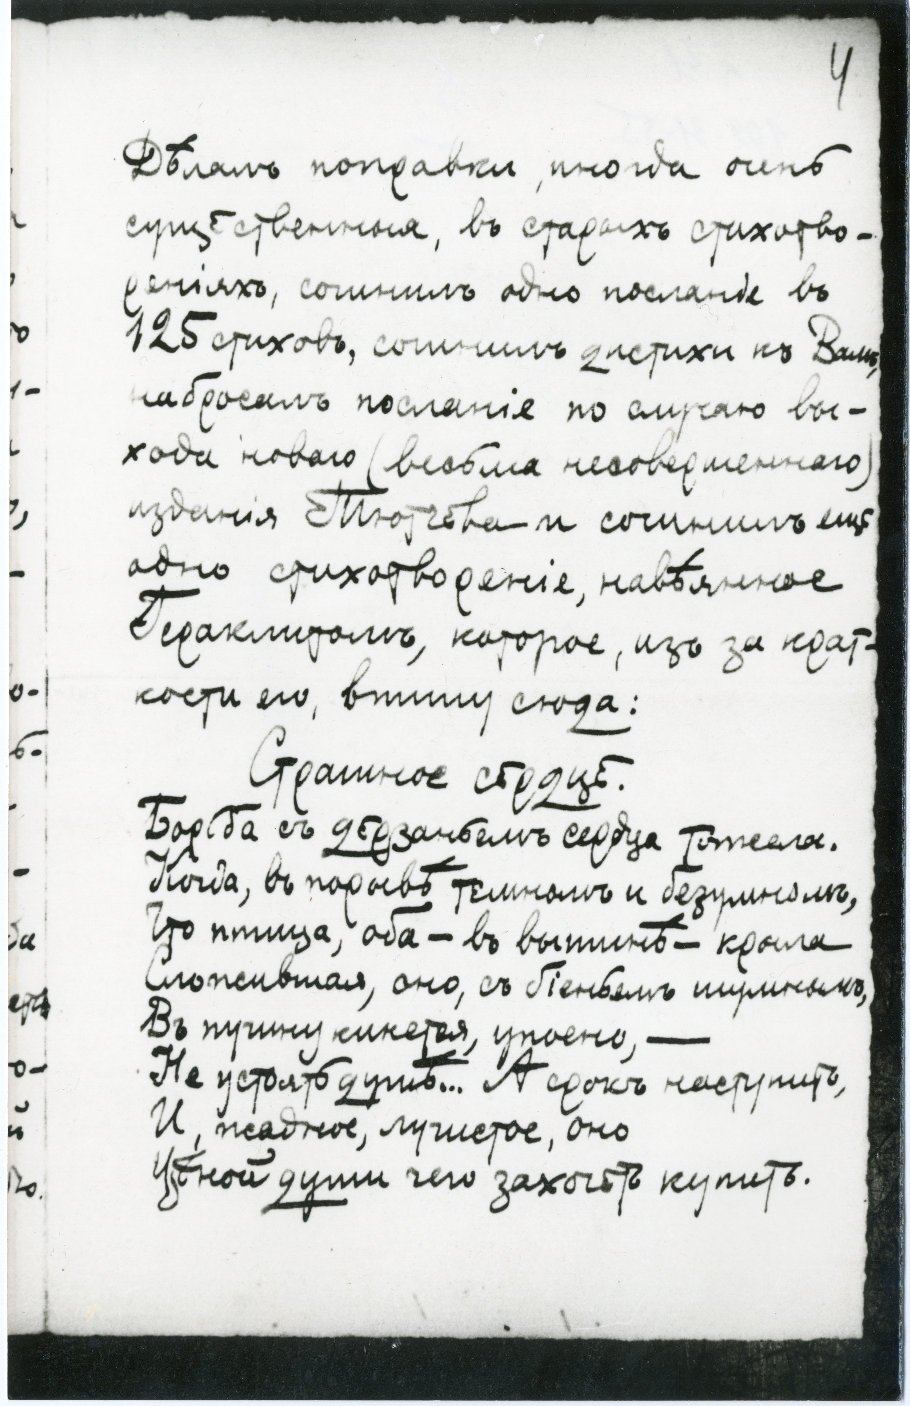 4
Дѣлалъ поправки, иногда очень
существенныя, въ старыхъ стихотво-
реніяхъ, сочинилъ одно посланіе въ
125 стиховъ, сочинилъ дистихи къ Вамъ,
набросалъ посланіе по случаю вы-
хода новаго (весьма несовершеннаго)
изданія Тютчева и сочинилъ еще
одно стихотвореніе, навѣянное
Гераклитомъ, которое, изъ за крат-
кости его, впишу сюда:
Страшное сердце.
Борьба съ дерзаньемъ сердца тяжела.
Когда, въ порывѣ темномъ и безумномъ,
Что птица, оба – въ вышинѣ – крыла
Сложившая, оно, съ біеньемъ шумнымъ,
Въ пучину кинется, упоено, —
Не устоять душѣ... А срокъ наступитъ,
И, жадное, лучистое, оно
Цѣной души чего захочетъ купитъ.